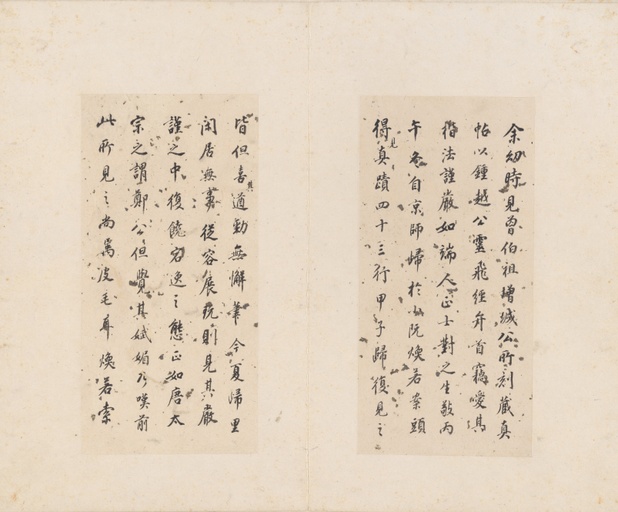 余幼時見曾伯祖增城公所刻藏真
帖以鍾越公靈飛經弁首竊愛其
楷法謹嚴如端人正士對之生敬丙
午冬自京師歸於小阮煥若案頭
得見真蹟四十三行甲子歸復見之
皆但喜其遒勁無懈筆今夏歸里
閑居無事從容展玩則見其嚴
謹之中復饒宕逸之態正如唐太
宗之謂鄭公但覺其娬媚乃嘆前
此所見之尚爲皮毛耳煥若索